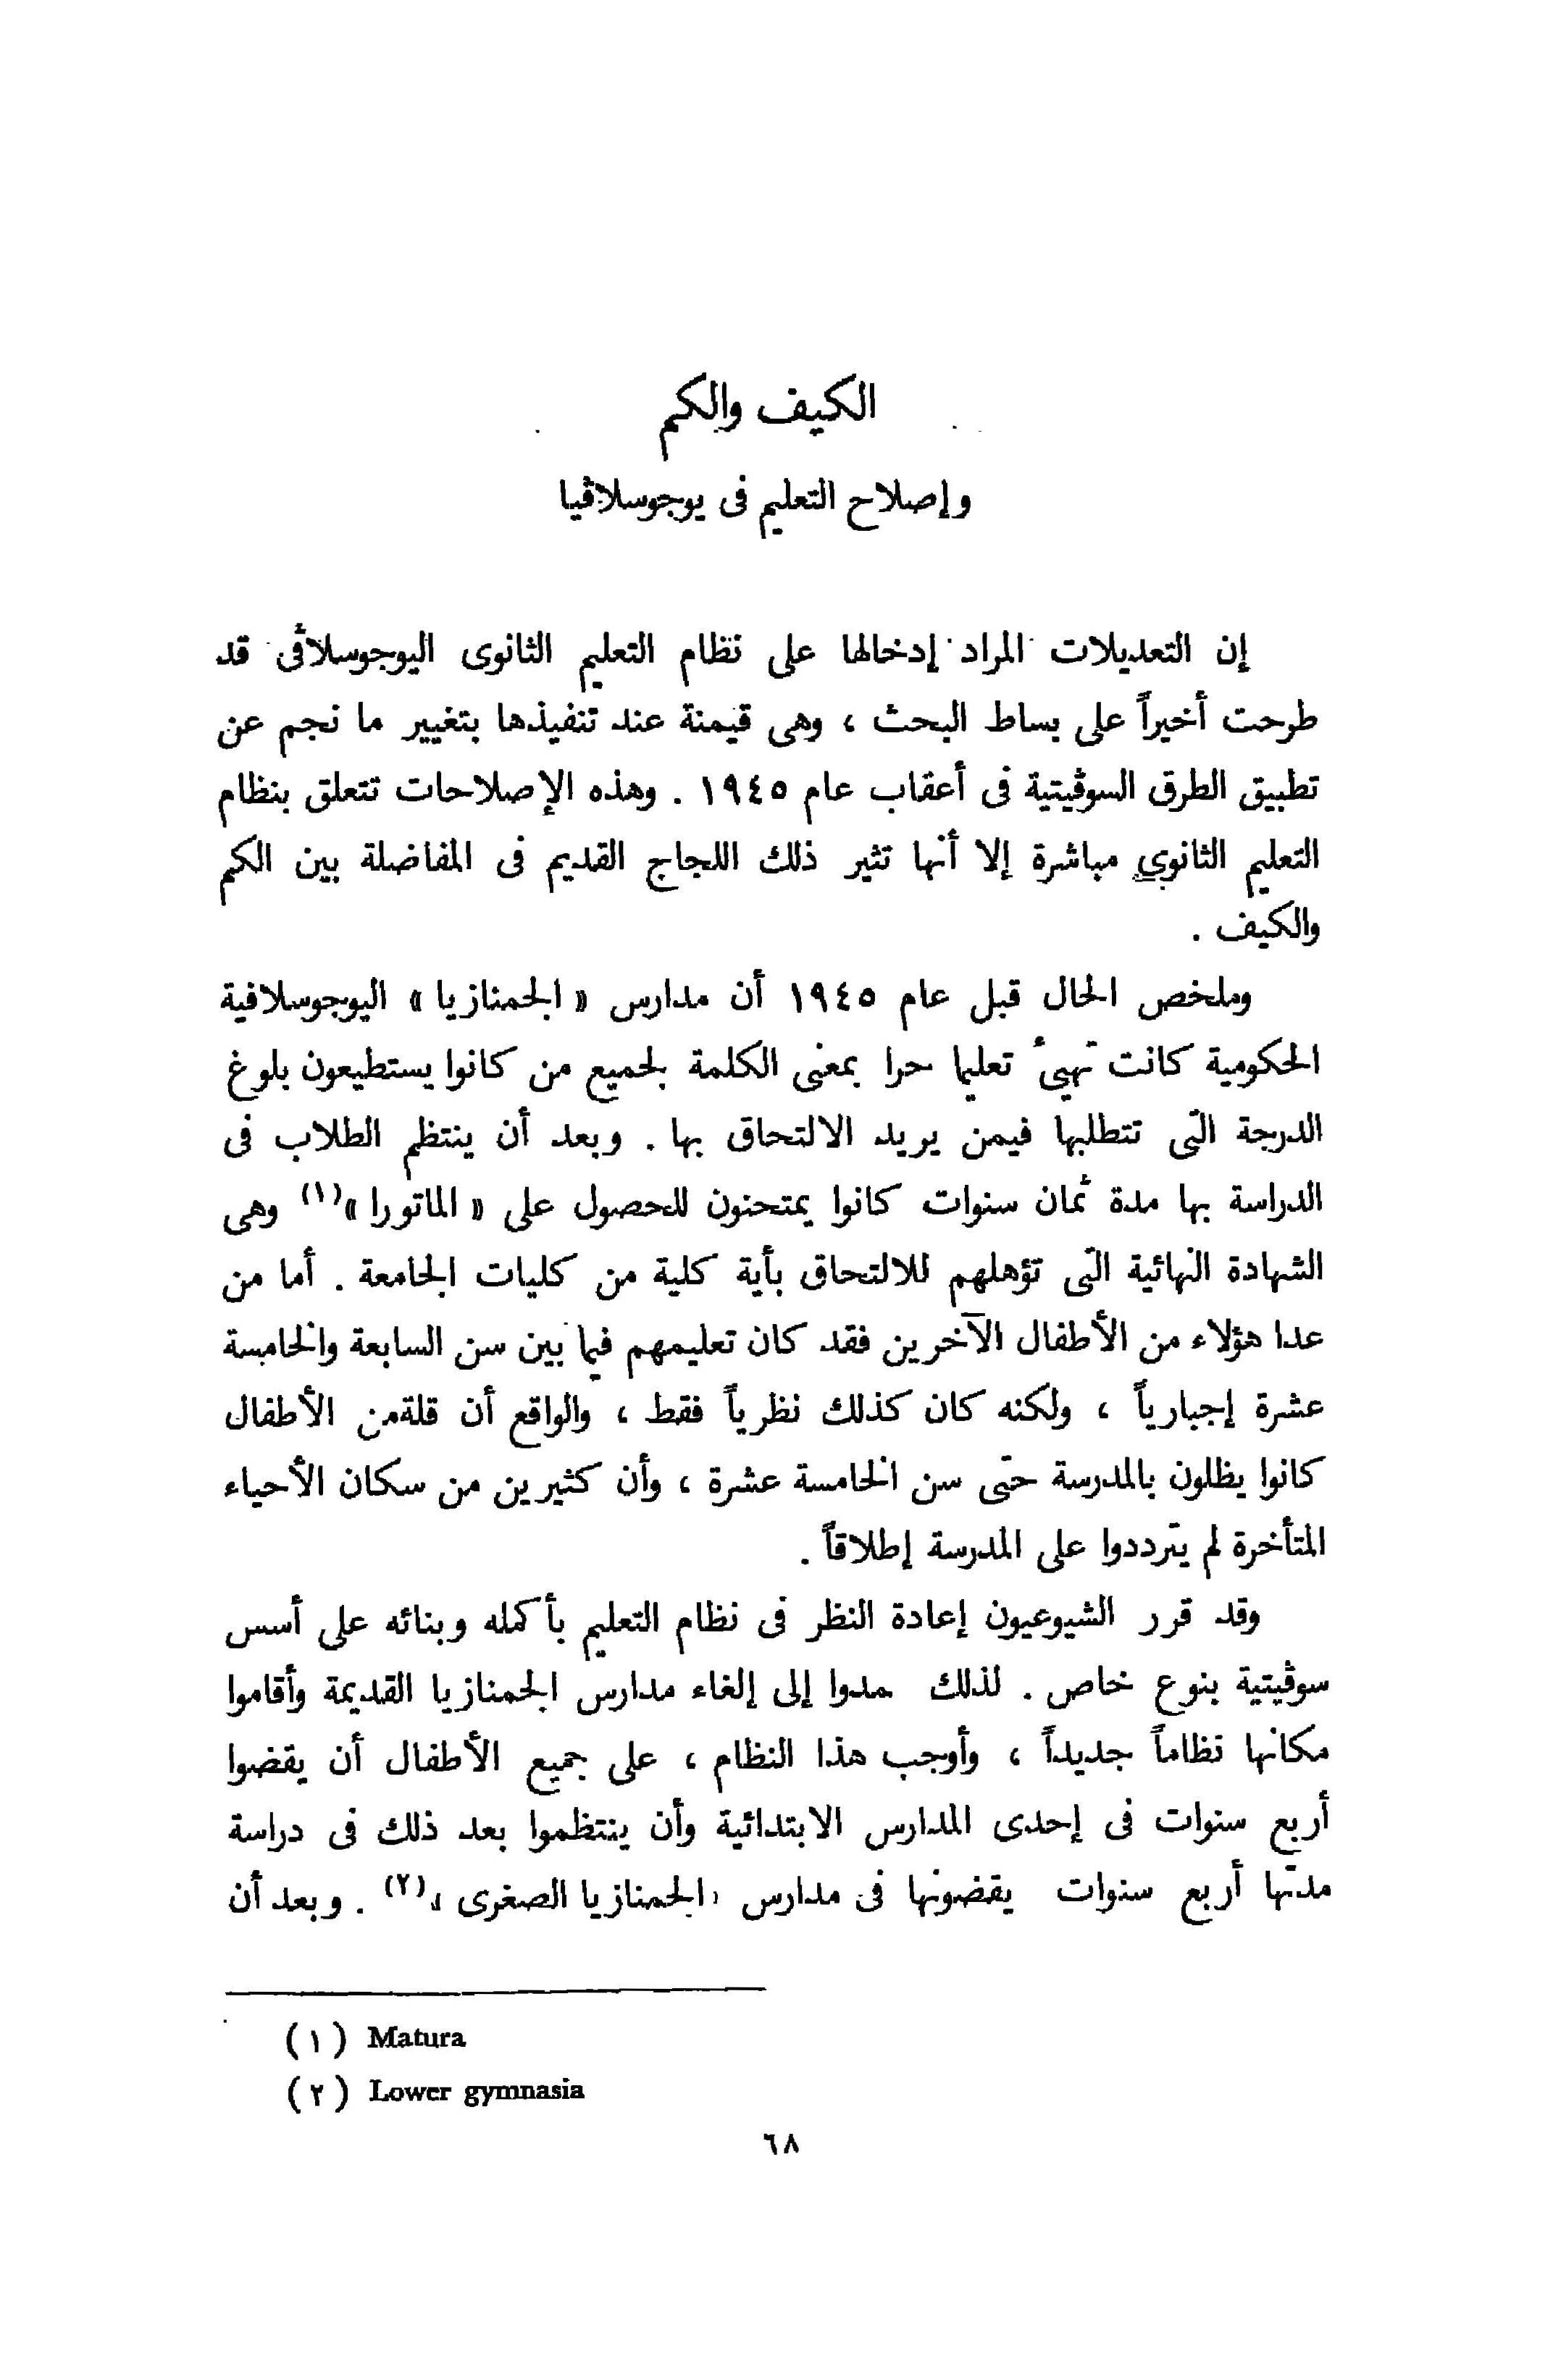 الكيف والكم
وإصلاح التعليم فى يوجوسلاڤيا
إن التعديلات المراد إدخالها على نظام التعليم الثانوى اليوجوسلاڤى قد
طرحت أخيراً على بساط البحث ، وهى قيمنة عند تنفيذها بتغيير ما نجم عن
تطبيق الطرق السوڤيتية فى أعقاب عام ١٩٤٥ . وهذه الإصلاحات تتعلق بنظام
التعليم الثانوي مباشرة إلا أنها تثير ذلك اللجاج القديم فى المفاضلة بين الكم
والكيف .
وملخص الحال قبل عام ١٩٤٥ أن مدارس « الجمنازيا » اليوجوسلافية
الحكومية كانت تهيئ تعليما حرا بمعنى الكلمة لجميع من كانوا يستطيعون بلوغ
الدرجة التى تتطلبها فيمن يريد الالتحاق بها . وبعد أن ينتظم الطلاب فى
الدراسة بها مدة ثمان سنوات كانوا يمتحنون للحصول على « الماتورا »(١) وهى
الشهادة النهائية التى تؤهلهم للالتحاق بأية كلية من كليات الجامعة . أما من
عدا هؤلاء من الأطفال الآخرين فقد كان تعليمهم فيما بين سن السابعة والخامسة
عشرة إجبارياً ، ولكنه كان كذلك نظرياً فقط ، والواقع أن قلة من الأطفال
كانوا يظلون بالمدرسة حتى سن الخامسة عشرة ، وأن كثيرين من سكان الأحياء
المتأخرة لم يترددوا على المدرسة إطلاقاً .
وقد قرر الشيوعيون إعادة النظر فى نظام التعليم بأكمله وبنائه على أسس
سوڤيتية بنوع خاص . لذلك عمدوا إلى إلغاء مدارس الجمنازيا القديمة وأقاموا
مكانها نظاماً جديداً ، وأوجب هذا النظام ، على جميع الأطفال أن يقضوا
أربع سنوات فى إحدى المدارس الابتدائية وأن ينتظموا بعد ذلك فى دراسة
مدتها أربع سنوات يقضونها فى مدارس « الجمنازيا الصغرى »(٢) . وبعد أن
(١) Matura
(٢) Lower gymnasia
٦٨